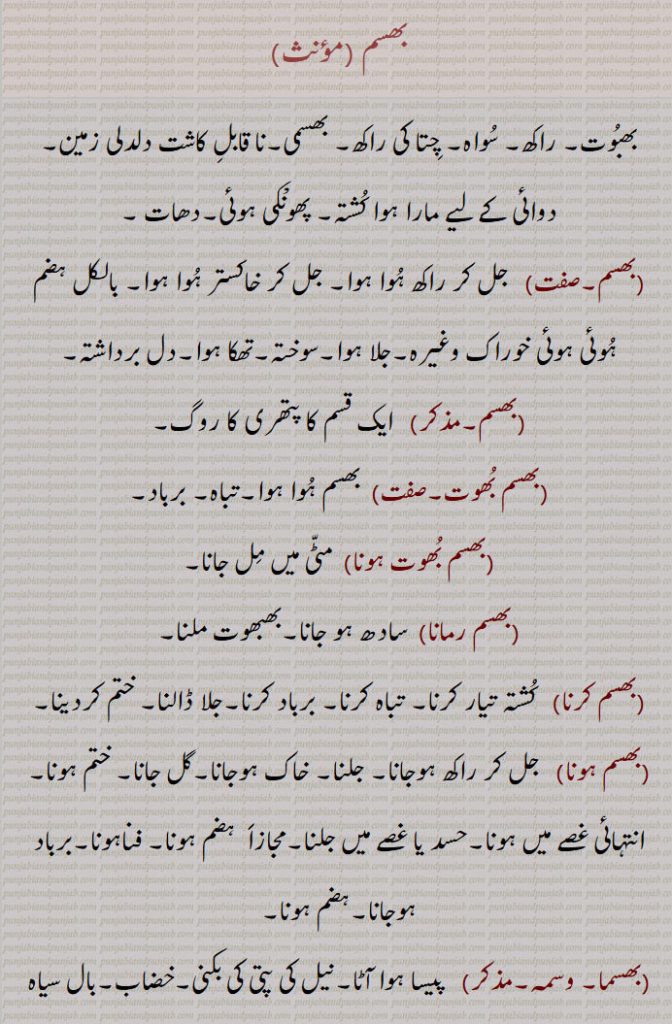 بھسم (مؤنث)
بھبُوت۔ راکھ۔ سُواہ۔ چِتا کی راکھ۔ بھسمی۔ نا قابلِ کاشت دلدلی زمین۔
دوائی کے لیے مارا ہوا کُشتہ۔ پھونْکی ہوئی۔ دھات ۔
(بھسم۔صفت) جل کر راکھ ہُوا ہوا۔ جل کر خاکستر ہُوا ہوا۔ بالکل ہضم
ہُوئی ہوئی خوراک وغیرہ۔جلا ہوا۔سوختہ۔تھکا ہوا۔دل برداشتہ۔
(بھسم۔مذکر) ایک قسم کا پتھری کا روگ۔
(بھسم بُھوت۔صفت) بھسم ہُوا ہوا۔تباہ۔ برباد۔
(بھسم بُھوت ہونا) مٹّی میں مِل جانا۔
(بھسم رمانا) سادھ ہو جانا۔بھبھوت ملنا۔
(بھسم کرنا) کُشتہ تیار کرنا۔ تباہ کرنا۔ برباد کرنا۔جلا ڈالنا۔ ختم کردینا۔
(بھسم ہونا) جل کر راکھ ہوجانا۔ جلنا۔ خاک ہوجانا۔گل جانا۔ ختم ہونا۔
انتہائی غصے میں ہونا۔حسد یا غصے میں جلنا۔مجازاَ ہضم ہونا۔ فناہونا۔برباد
ہوجانا۔ہضم ہونا۔
(بھسما۔ وسمہ۔مذکر) پیسا ہوا آٹا۔نیل کی پتی کی بکنی۔خضاب۔بال سیاہ